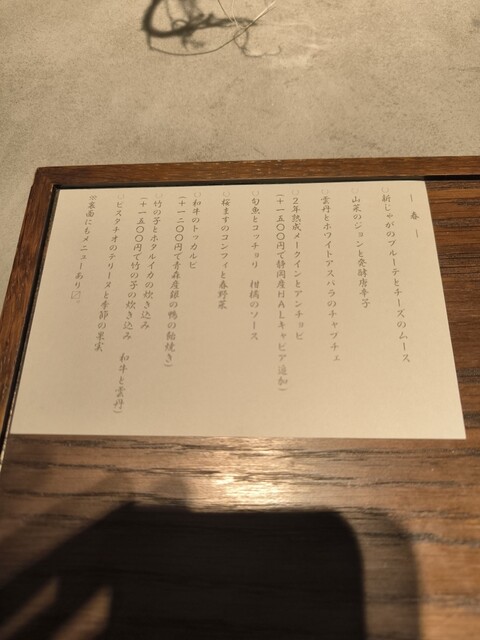 ― 春 ―
○新じゃがのブルーテとチーズのムース
山菜のジョンと発酵唐辛子
○雲丹とホワイトアスパラのチャプチェ
○2年熟成メークインとアンチョビ
(+一五〇〇円で静岡産HALキャビア追加)
○旬魚とコッチョリ 柑橘のソース
○桜ますのコンフィと春野菜
○和牛のトッカルビ
(+一二〇〇円で青森産銀の鴨の飴焼き)
○竹の子とホタルイカの炊き込み
(+一五〇〇円で竹の子の炊き込み 和牛と雲丹)
○ピスタチオのテリーヌと季節の果実
※裏面にもメニューあり